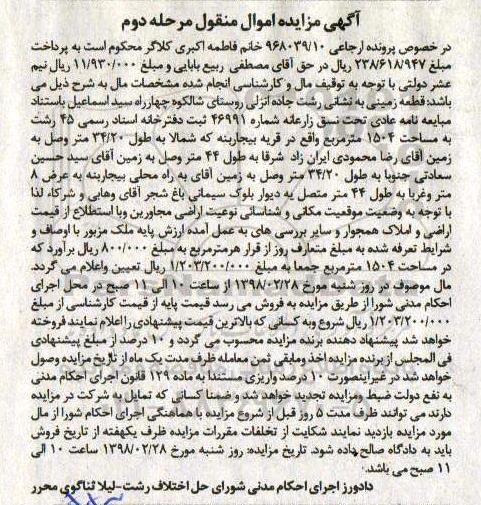 آگهی مزایده اموال منقول مرحله دوم
در خصوص پرونده ارجاعی ۹۶۸۰۳۹/۱۰ خانم فاطمه اکبری کلاگر محکوم است به پرداخت
مبلغ ۲۳۸/۶۱۸/۹۴۷ ریال در حق آقای مصطفی ربیع بابایی و مبلغ ۱۱/۹۳۰/۰۰۰ ریال نیم
عشر دولتی با توجه به توقیف مال و کارشناسی انجام شده مشخصات مال به شرح ذیل می
باشد: قطعه زمینی به نشانی رشت جاده انزلی روستای شالکوه چهارراه سید اسماعیل باستناد
مبایعه نامه عادی تحت نسق زارعانه شماره ۴۶۹۹۱ ثبت دفترخانه اسناد رسمی ۴۵ رشت
به مساحت ۱۵۰۴ مترمربع واقع در قریه بیجاربنه که شمالا به طول ۳۴/۲۰ متر وصل به
زمین آقای رضا محمودی ایران زاد شرقا به طول ۴۴ متر وصل به زمین آقای سید حسین
سعادتی جنوبا به طول ۳۴/۲۰ متر وصل به زمین آقای به راه محلی بیجاربنه به عرض ۸
متر و غربا به طول ۴۴ متر متصل به دیوار بلوک سیمانی باغ شجر آقای وهابی و شرکاء لذا
با توجه به وضعیت موقعیت مکانی و شناسائی نوعیت اراضی مجاورین وبا استطلاع از قیمت
اراضی و املاک همجوار و سایر بررسی های به عمل آمده ارزش پایه ملک مزبور با اوصاف و
شرایط تعرفه شده به مبلغ متعارف روز از قرار هرمترمربع به مبلغ ۸۰۰/۰۰۰ ریال برآورد که
در مساحت ۱۵۰۴ مترمربع جمعا به مبلغ ۱/۲۰۳/۲۰۰/۰۰۰ ریال تعیین واعلام می گردد.
مال موصوف در روز شنبه مورخ ۱۳۹۸/۰۲/۲۸ از ساعت ۱۰ الی ۱۱ صبح در محل اجرای
احکام مدنی شورا از طریق مزایده به فروش می رسد قیمت پایه از قیمت کارشناسی از مبلغ
۱/۲۰۳/۲۰۰/۰۰۰ ریال شروع وبه کسانی که بالاترین قیمت پیشنهادی را اعلام نمایند فروخته
خواهد شد پیشنهاد دهنده برنده مزایده محسوب می گردد و ۱۰ درصد از مبلغ پیشنهادی
فی المجلس از برنده مزایده اخذ ومابقی ثمن معامله ظرف مدت یک ماه از تاریخ مزایده وصول
خواهد شد در غیراینصورت ۱۰ درصد واریزی مستندا به ماده ۱۲۹ قانون اجرای احکام مدنی
به نفع دولت ضبط و مزایده تجدید خواهد شد و ضمنا کسانی که تمایل به شرکت در مزایده
دارند می توانند ظرف مدت ۵ روز قبل از شروع مزایده با هماهنگی اجرای احکام شورا از مال
مورد مزایده بازدید نمایند شکایت از تخلفات مقررات مزایده ظرف یکهفته از تاریخ فروش
باید به دادگاه صالح داده شود. تاریخ مزایده: روز شنبه مورخ ۱۳۹۸/۰۲/۲۸ ساعت ۱۰ الی
۱۱ صبح می باشد.
دادورز اجرای احکام مدنی شورای حل اختلاف رشت-لیلا ثناگوی محرر